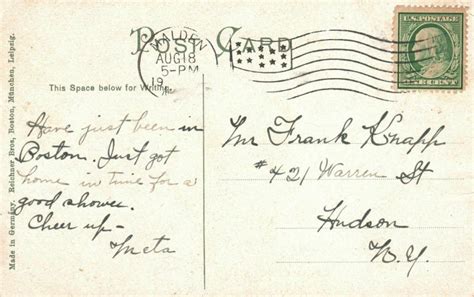 POST CARD
MALDEN
AUG 18
5-PM
19
U.S. POSTAGE
CENT
This Space below for Writing
Have just been in
Boston. Just got
home in time for a
good shower.
Cheer up -
Meta
Mr Frank Knapp
#421 Warren St
Hudson
N.Y.
Made in Germany, Reichner Bros, Boston, München, Leipzig.